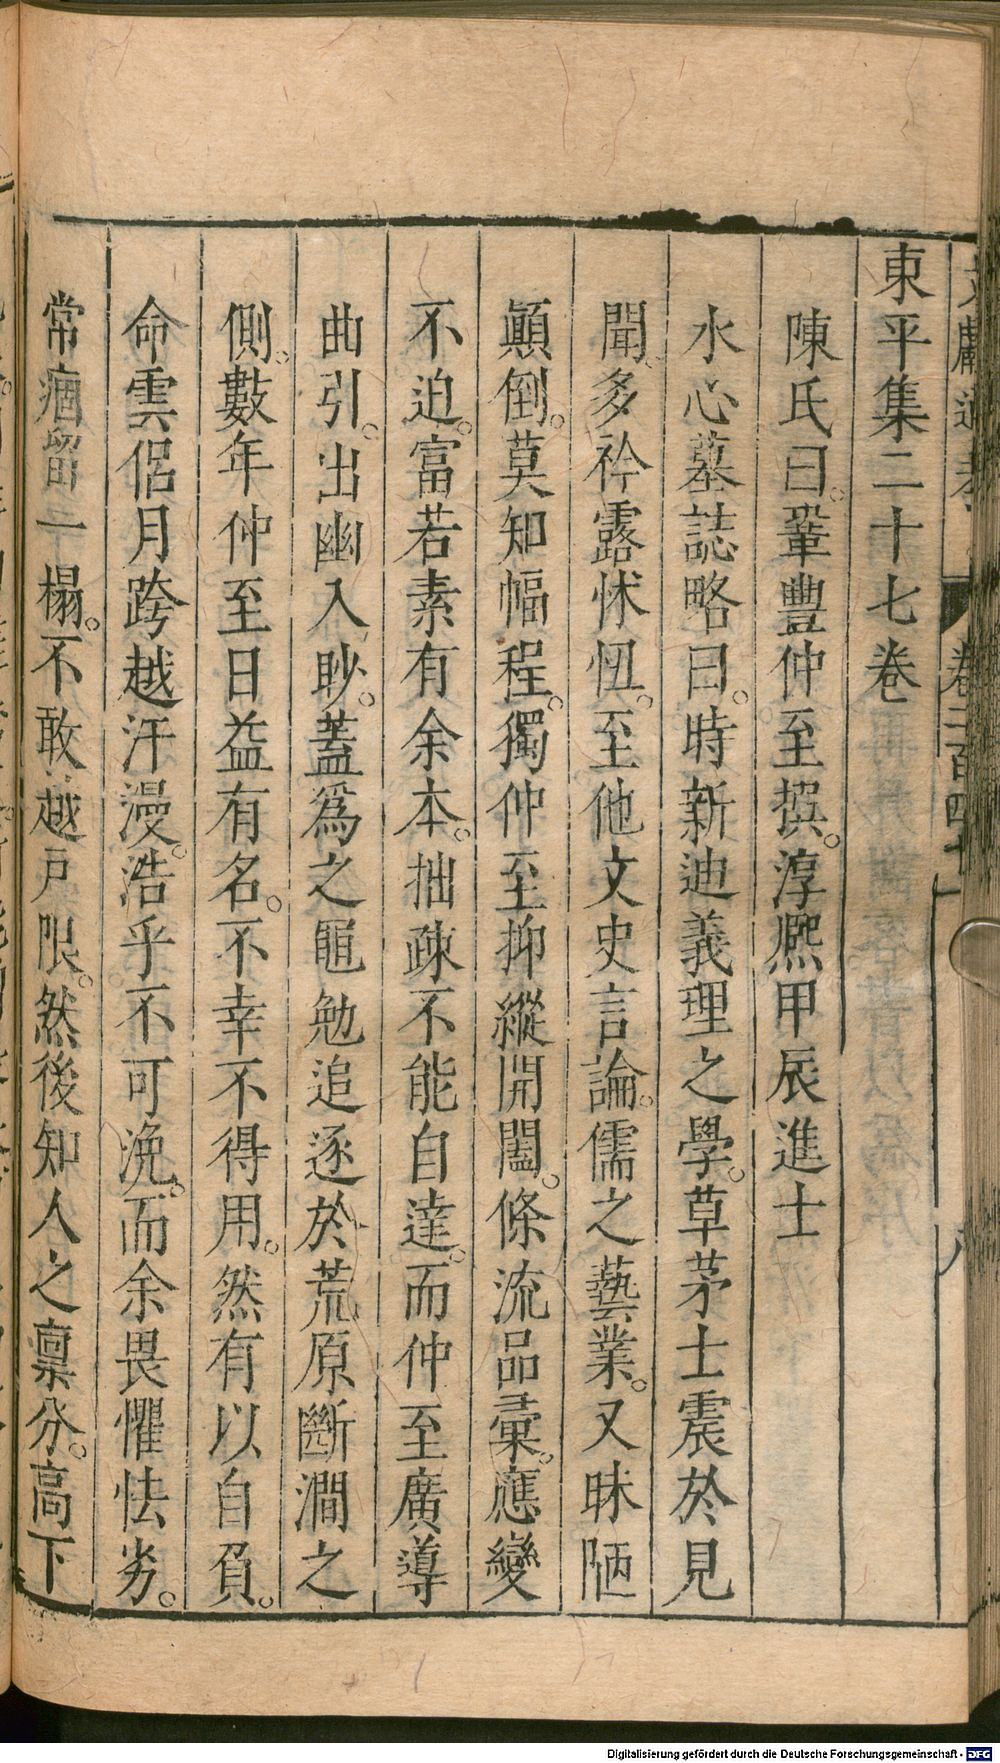 文獻通考 卷二百四十一 八
東平集二十七卷
陳氏曰。鞏豐仲至撰。淳熈甲辰進士
水心墓誌略曰。時新迪義理之學。草茅士震於見
聞。多衿露怵忸。至他文史言論。儒之藝業。又昧陋
顚倒。莫知幅程。獨仲至抑縱開闔。條流品彙。應變
不迫。富若素有余本。拙疎不能自達。而仲至廣導
曲引。出幽入眇。蓋爲之黽勉追逐於荒原斷澗之
側。數年仲至日益有名。不幸不得用。然有以自負。
命雲侶月跨越汗漫。浩乎不可浼。而余畏懼怯劣。
常痼留一榻。不敢越戸限。然後知人之禀分。高下
Digitalisierung gefördert durch die Deutsche Forschungsgemeinschaft - DFG